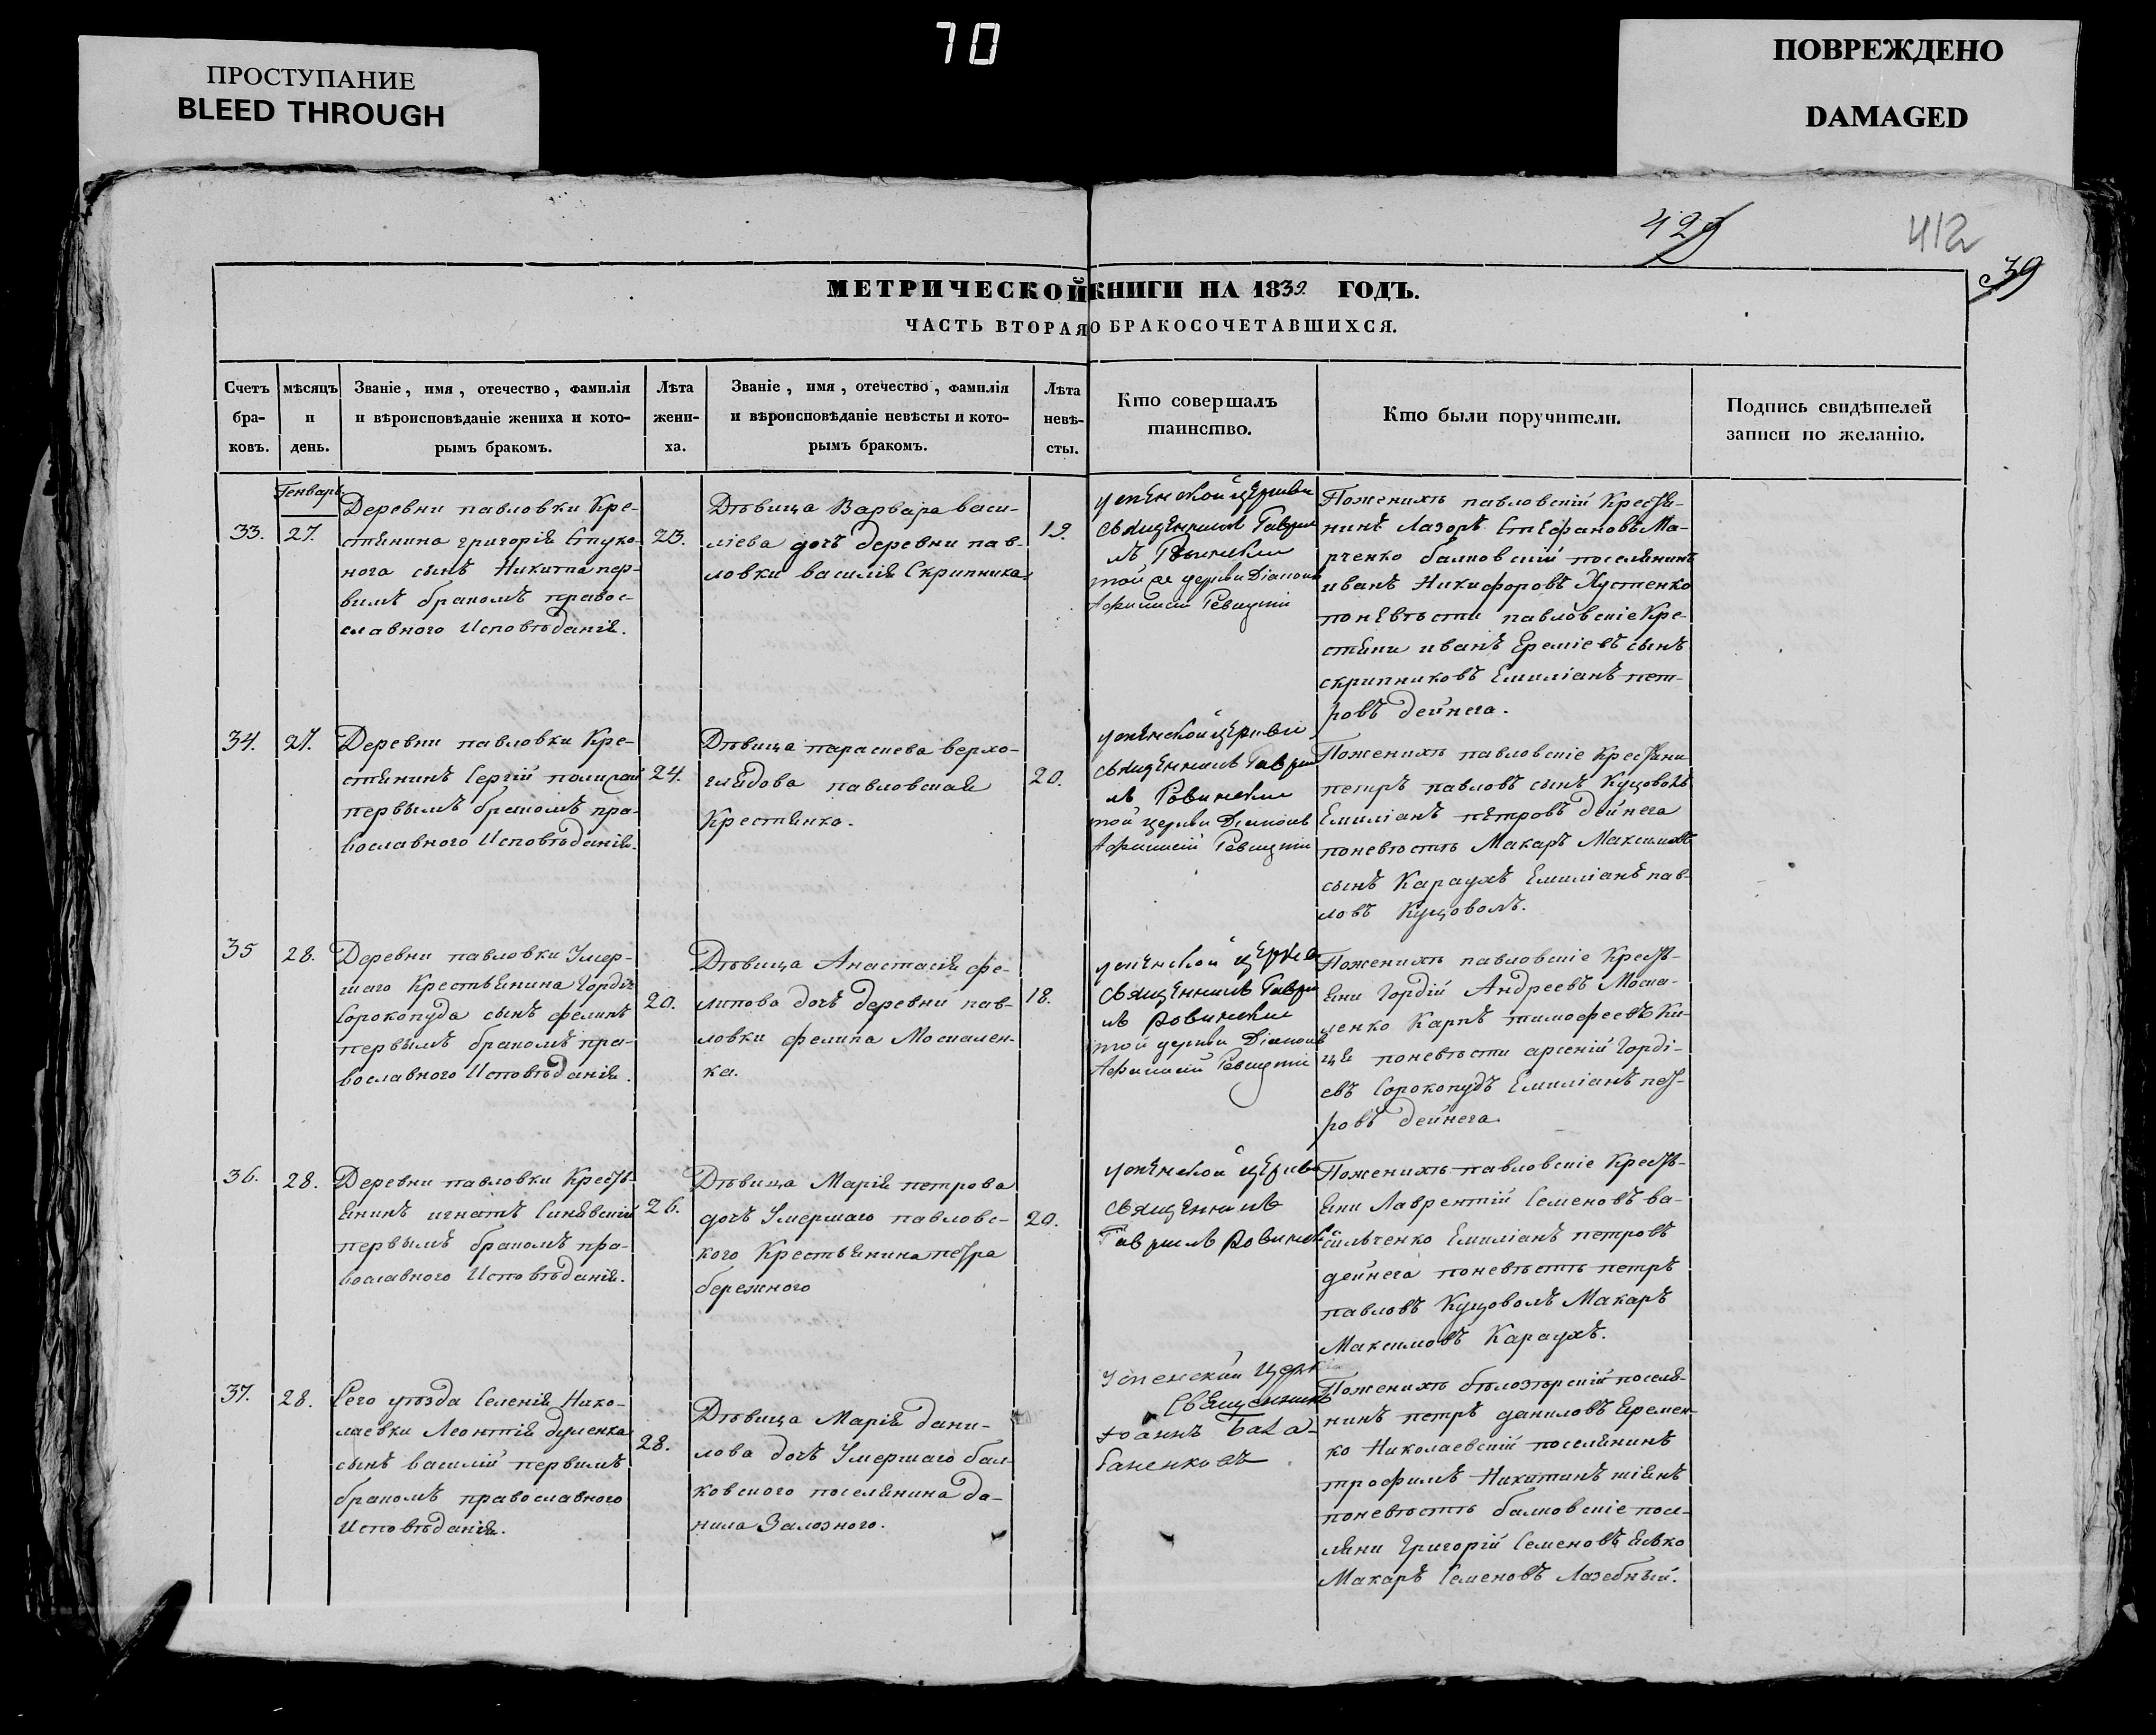 70
ПРОСТУПАНИЕ
BLEED THROUGH
ПОВРЕЖДЕНО
DAMAGED
429
412
39
МЕТРИЧЕСКОЙ КНИГИ НА 1839. ГОДЪ.
ЧАСТЬ ВТОРАЯ О БРАКОСОЧЕТАВШИХСЯ.
Счетъ
бра-
ковъ.
мѣсяцъ
и
день.
Званіе, имя, отечество, фамилія
и вѣроисповѣданіе жениха и кото-
рымъ бракомъ.
Лѣта
жени-
ха.
Званіе, имя, отечество, фамилія
и вѣроисповѣданіе невѣсты и кото-
рымъ бракомъ.
Лѣта
невѣ-
сты.
Кто совершалъ
таинство.
Кто были поручители.
Подпись свидѣтелей
записи по желанію.
33.
Генварь
27.
Деревни павловки Кре-
стянина григорія Стуко-
нога сынъ Никита пер-
вимъ бракомъ правос-
славного Исповѣданія.
23.
Дѣвица Варвара васи-
ліева дочъ деревни пав-
ловки василія Скрипника
19.
успѣнской церкви
священникъ Гаврии-
лъ Ровински
той же церкви Діаконъ
Афанасій Ревуцкій
Поженихъ павловскій Крестя-
нинъ Лазоръ Стефановъ Ма-
рченко балковскій поселянинъ
иванъ Никифоровъ Хустенко
поневѣсти павловскіе Кре-
стяни иванъ Еремієвъ сынъ
скрипниковъ Емиліанъ пет-
ровъ дейнега.
34.
27.
Деревни павловки Кре-
стянинъ Сергій
первымъ бракомъ пра-
вославного Исповѣданія.
24.
Дѣвица параскева верхо-
глядова павловская
Крестянка.
20.
успенской церкви
священникъ Гаврии-
лъ Ровински
той церкви Діаконъ
Афанасій Ревуцкій
Поженихъ павловскіе Крестяни
петръ павловъ сынъ Куцоволъ
Емиліанъ пѣтровъ дейнега
поневѣстъ Макаръ Максимовъ
сынъ Караухъ Емиліанъ пав-
ловъ Куцоволъ.
35
28.
Деревни павловки Умер-
шаго Крестьянина Гордія
Сорокопуда сынъ филипъ
первымъ бракомъ пра-
вославного Исповѣданія.
20.
Дѣвица Анастасія фи-
липова дочъ деревни пав-
ловки филипа Москален-
ка.
18.
успенской церкви
священникъ Гаврии-
лъ Ровински
той церкви Діаконъ
Афанасій Ревуцкій
Поженихъ павловскіе Кресть-
яни Гордій Андреевъ Моска-
ленко Карпъ тимофеевъ Ки-
ця поневѣсти арсеній Горді-
евъ Сорокопудъ Емиліанъ пет-
ровъ дейнега.
36.
28.
Деревни павловки Кресть-
янинъ игнатъ Синявскій
первымъ бракомъ пра-
вославного Исповѣданія.
26.
Дѣвица Марія петрова
дочъ Умершаго павловс-
кого Крестьянина петра
бережного
20.
успенской церкви
священникъ
Гавріилъ Ровински
Поженихъ павловскіе Кресть-
яни Лаврентій Семеновъ ва-
сильченко Емиліанъ петровъ
дейнега поневѣстъ петръ
павловъ Куцоволъ Макаръ
Максимовъ Караухъ.
37.
28.
Сего уѣзда Селенія Нико-
лаевки Леонтія дуленка
сынъ василій первимъ
бракомъ православного
Исповѣданія.
28.
Дѣвица Марія дани-
лова дочъ Умершаго бал-
ковского поселянина да-
нила Залозного.
Успенской Церк
Священникъ
Іоаннъ Бала-
баненковъ
Поженихъ бѣлозѣрскій поселя-
нинъ петръ даниловъ Еремен-
ко Николаевскій поселянинъ
трофимъ Никитинъ
поневѣстъ балковскіе посе-
ляни Григорій Семеновъ
Макаръ Семеновъ Лазебный.